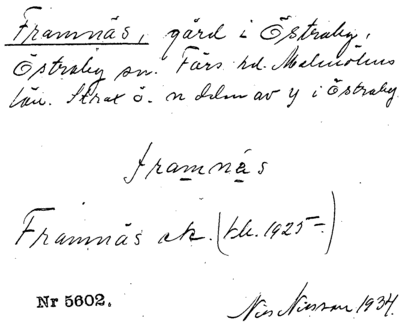 Framnäs, gård i Östraby,
Östraby sn. Färs hd. Malmöhus
län. Strax ö. n delen av y i Östraby.
framnä̱s
Framnäs ek. (bl. 1925–)
Nr 5602.
Nils Nilsson 1934.